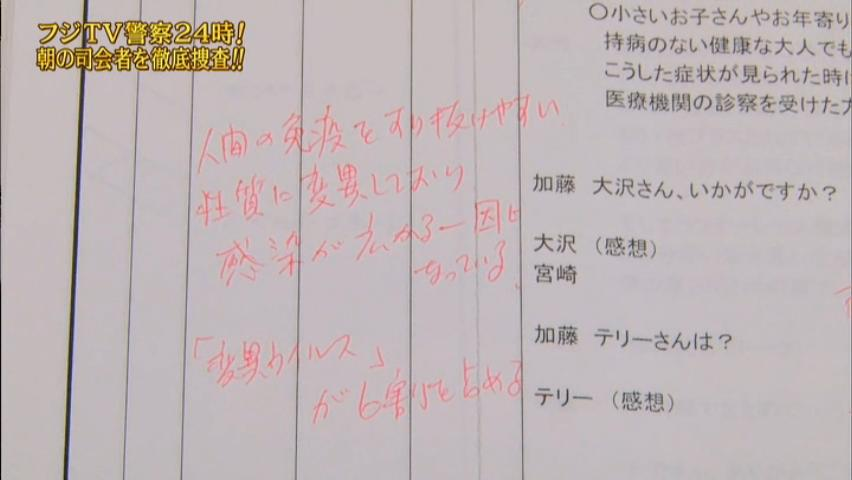 フジTV警察24時！
朝の司会者を徹底捜査!!
○小さいお子さんやお年寄り
持病のない健康な大人でも
こうした症状が見られた時に
医療機関の診察を受けた方
人間の免疫をすり抜けやすい
性質に変異しており
感染が広がる一因に
なっている
「変異ウイルス」
が6割を占める
加藤 大沢さん、いかがですか？
大沢 （感想）
宮崎
加藤 テリーさんは？
テリー （感想）